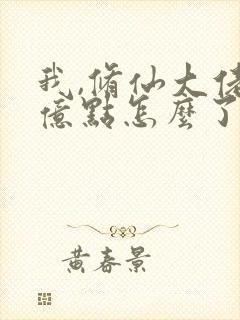 我,脩仙大佬
億點怎麼了
黃春景